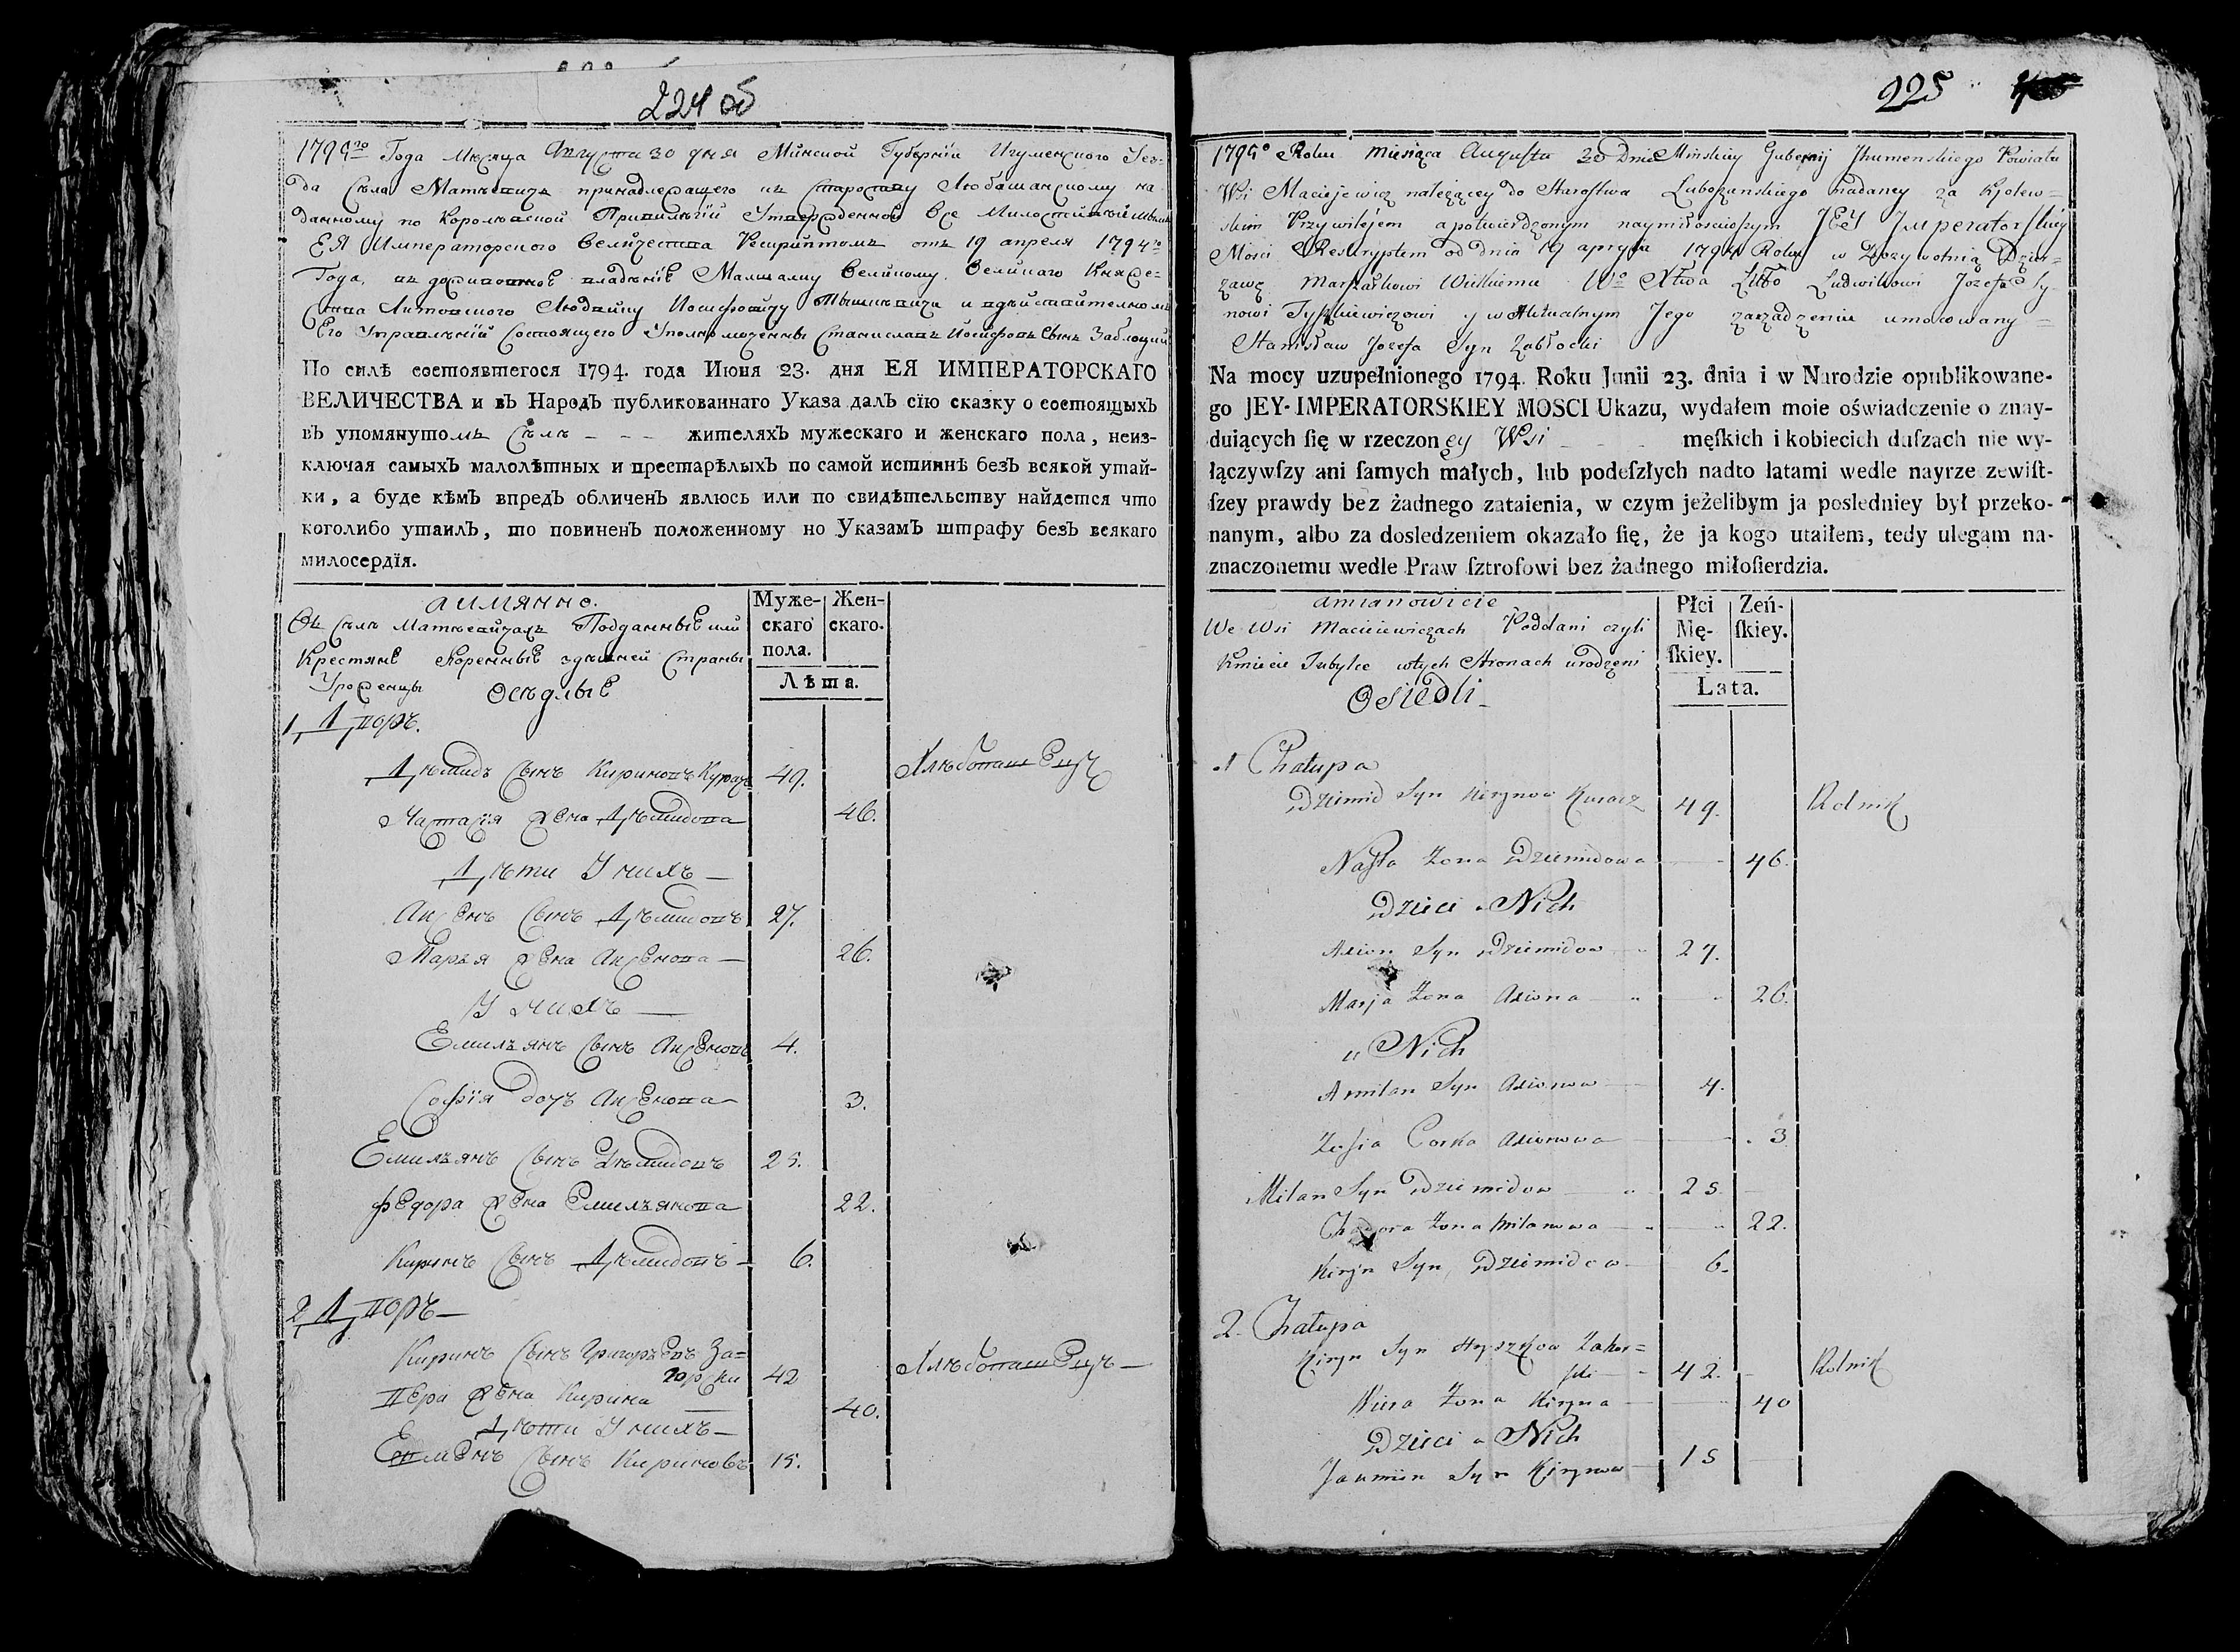 224 об
1795го Года Месяца Августа 30 дня Минской Губернїи Игуменского Уез-
да Села Матѣевичъ принадлежащего къ Староству Любошанскому на
данному по Королевской Привилегїи Утвержденной все Милостивѣйшимъ
ЕЯ Императорского Величества Рескриптомъ отъ 19 апреля 1794го
Года, въ доживотное владѣнїе Маршалку Великому Великаго Княже-
ства Литовского Людвику Иосифовичу Тышкевичу и вдѣйствительномъ
Его Управленїи Состоящего Уполномоченны Станиславъ Иосифовъ Сынъ Заблоцкий
По силѣ состоявшегося 1794. года Июня 23. дня ЕЯ ИМПЕРАТОРСКАГО
ВЕЛИЧЕСТВА и въ Народъ публикованнаго Указа далъ сїю сказку о состоящыхъ
въ упомянутомъ Селѣ - - - жителяхъ мужескаго и женскаго пола, неиз-
ключая самыхъ малолѣтныхъ и престарѣлыхъ по самой истиннѣ безъ всякой утай-
ки, а буде кѣмъ впредъ обличенъ явлюсь или по свидѣтельству найдется что
коголибо утаилъ, то повиненъ положенному но Указамъ штрафу безъ всякаго
милосердїя.
аимянно.
Въ Селѣ Матѣевичахъ Подданные или
Крестяне Коренные здѣшней Страны
Уроженцы Оседлые
Муже-
скаго
пола.
Жен-
скаго.
Лѣта.
1, Дворъ.
Дѣмидъ Сынъ Кириновъ Курачъ 49. Хлѣбопашецъ
Настасїя жена Дѣмидова 46.
Дѣти У нихъ
Аксенъ Сынъ Дѣмидовъ 27.
Марья жена Аксенова 26.
У нихъ
Емильянъ Сынъ Аксеновъ 4.
Софїя дочъ Аксенова 3.
Емильянъ Сынъ Дѣмидовъ 25.
Федора жена Емильянова 22.
Киринъ Сынъ Дѣмидовъ 6.
2, Дворъ
Киринъ Сынъ Григорьевъ За=
горски 42 Хлѣбопашецъ
Вера жена Кирина 40.
Дѣти У нихъ
Евменъ Сынъ Кириновъ 15.
225
1795o Roku Miesiąca Augusta 30 Dnia Minskiey Gubernij Jhumenskiego Powiatu
Wsi Maciejewicz należącey do Starostwa Luboszanskiego nadaney za Krolew=
skim Przywilejem a potwierdzonym naymiłościwszym JEY Imperatorskiey
Mości Reskryptem od dnia 19 apryla 1794 Roku w Dozywotnią Dzier=
zawę Marszałkowi Wielkiemu Wo Xtwa Littō Ludwikowi Jozefa Sy-
nowi Tyszkiewiczowi y w Aktualnym Jego zarządzeniu umocowany =
Stanisław Jozefa Syn Zabłocki
Na mocy uzupełnionego 1794. Roku Junii 23. dnia i w Narodzie opublikowane-
go JEY-IMPERATORSKIEY MOSCI Ukazu, wydałem moie oświadczenie o znay-
duiących ſię w rzeczoney Wsi - - - męſkich i kobiecich duſzach nie wy-
łączywſzy ani ſamych małych, lub podeſzłych nadto latami wedle nayrze zewiſt-
ſzey prawdy bez żadnego zataienia, w czym jeżelibym ja posledniey był przeko-
nanym, albo za dosledzeniem okazało ſię, że ja kogo utaiłem, tedy ulegam na-
znaczonemu wedle Praw ſztrofowi bez żadnego miłoſierdzia.
amianowicie
We Wsi Maciejewiczach Poddani czyli
Kmiecie Tubylce wtych Stronach urodzeni
Osiedli
Płci
Mę-
ſkiey.
Zeń-
ſkiey.
Lata.
1 Chałupa
Dziemid Syn Kirynow Kuracz 49. Rolnik
Nasta Zona Dziemidowa 46.
Dzieci u Nich
Axion Syn Dziemidow 27.
Marja Zona Axiona 26.
u Nich
Amilan Syn Axionow 4.
Zosia Corka Axionowa 3
Milan Syn Dziemidow 25
Chadora Zona Milanowa 22.
Kiryn Syn Dziemidow 6.
2. Chałupa
Kiryn Syn Hryszkow Zahor=
ski 42. Rolnik
Wiera Zona Kiryna 40
Dzieci u Nich
Jaumien Syn Kirynow 15